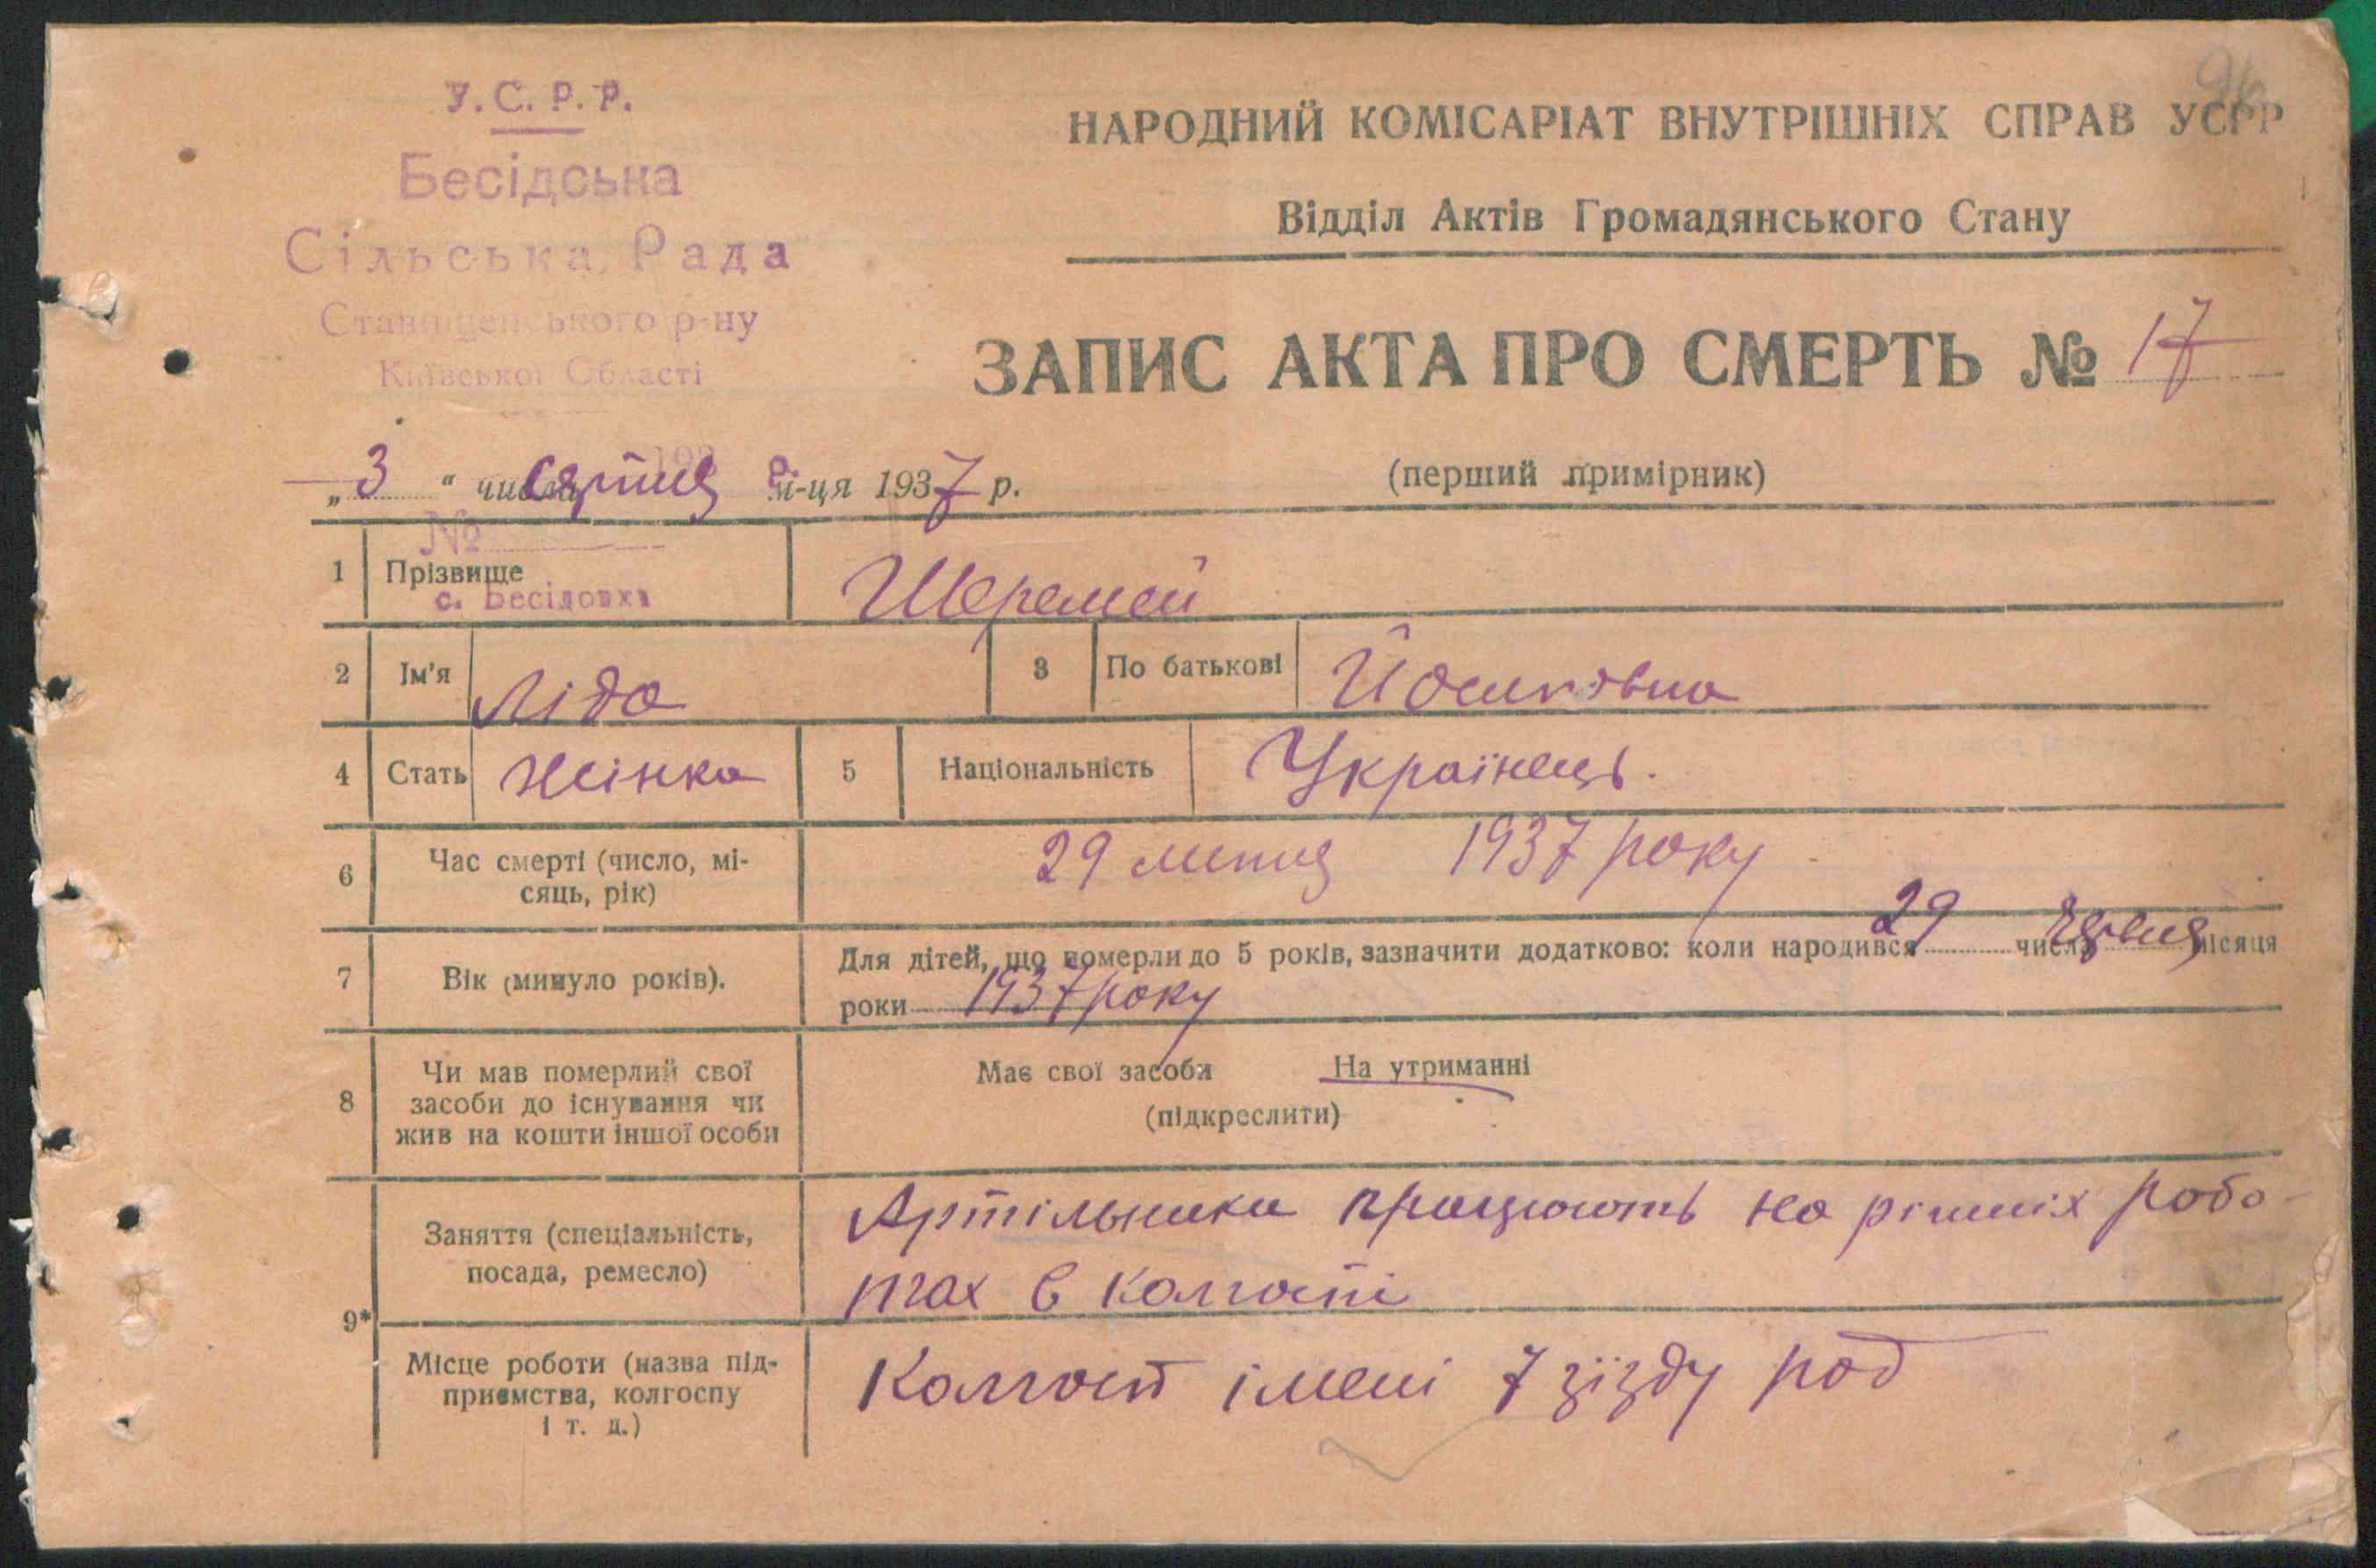 96
У.С.Р.Р.
Бесідська
Сільська Рада
Ставищенського р-ну
Київської Області
НАРОДНИЙ КОМІСАРІАТ ВНУТРІШНІХ СПРАВ УСРР
Відділ Актів Громадянського Стану
ЗАПИС АКТА ПРО СМЕРТЬ № 17
(перший примірник)
193
„ 3 “ числа серпня м-ця 1937 р.
№
1 Прізвище Шеремей
с. Бесідовка
2 Ім'я Ліда 3 По батькові
4 Стать жінка 5 Національність Українець.
6 Час смерті (число, мі-
сяць, рік) 29 липня 1937 року
7 Вік (минуло років). Для дітей, що померли до 5 років, зазначити додатково: коли народився 29 числа червня місяця
роки 1937 року
8 Чи мав померлий свої
засоби до існування чи
жив на кошти іншої особи
Має свої засоби На утриманні
(підкреслити)
9* Заняття (спеціальність,
посада, ремесло)
Артільники працюють на різних робо-
тах в колгоспі
Місце роботи (назва під-
приємства, колгоспу
і т. д.)
Колгосп імені 7 зїзду рад